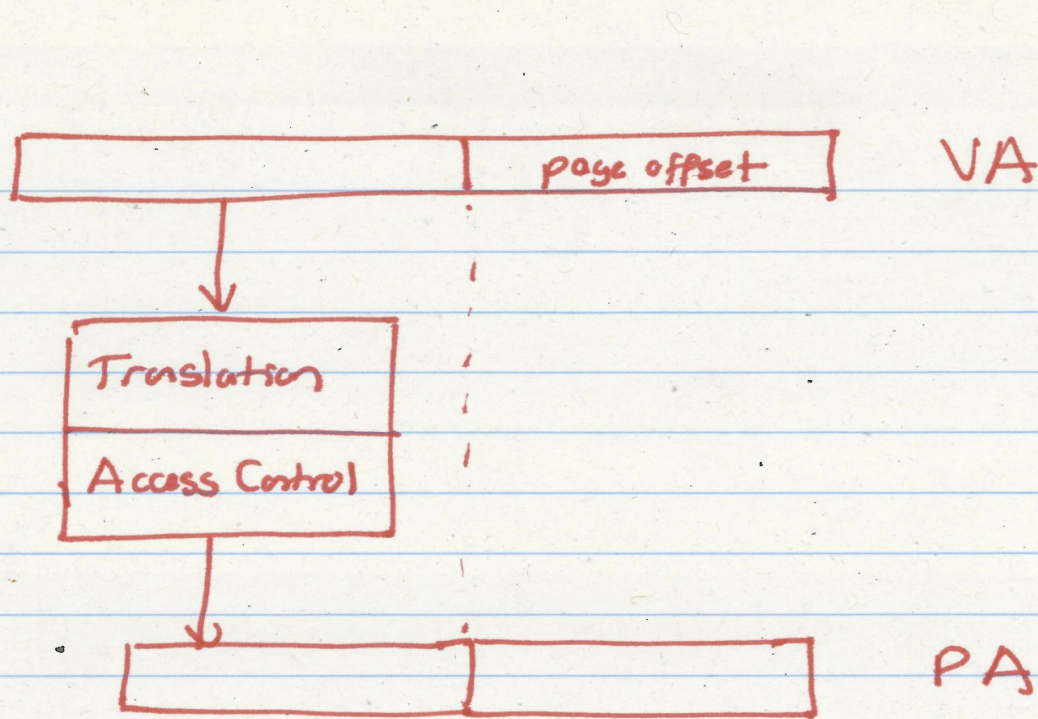 page offset VA
Translation
Access Control
PA